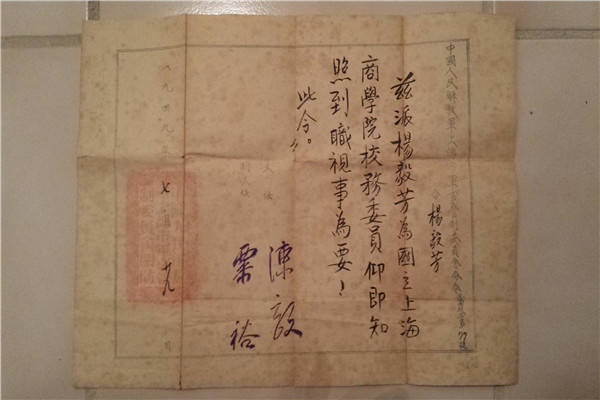 中國人民解放軍上海市軍事管制委員會命令
楊毅芳
茲派楊毅芳為國立上海
商學院校務委員仰即知
照到職視事為要！
此令。
主任 陳毅
副主任 粟裕
一九四九年七月廿九日